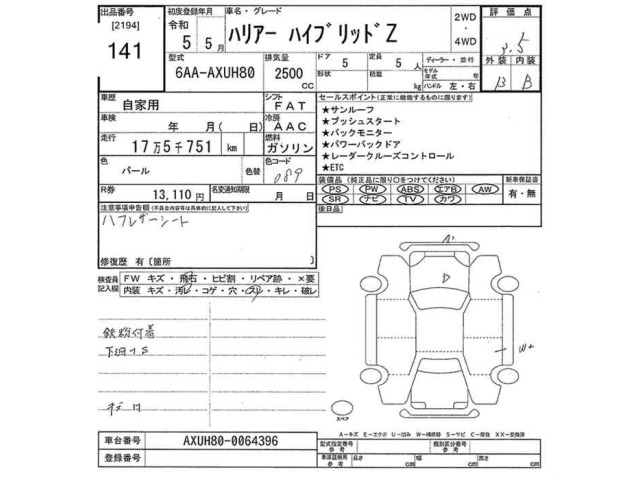 出品番号 初度登録年月 車名・グレード 評価点
[2194] 令和 2WD
141 5 5月 ハリアー ハイブリッドZ 4WD 3.5
型式 排気量 ドア 定員 ディーラー・並行 外装 内装
6AA-AXUH80 2500 CC 5 5人 モデル年式 年 B B
形状 積載 kg ハンドル 左・右
車歴 自家用 シフト FAT セールスポイント(正常に機能するものに限ります)
車検 年 月( 日) 冷房 AAC ★サンルーフ
★プッシュスタート
走行 17万5千751 km 燃料 ガソリン ★バックモニター
★パワーバックドア
色 パール 色替 色コード 089 ★レーダークルーズコントロール
★ETC
R券 13,110円 名変通知期限 月 日 装備品 (純正品に限り○をつけてください) 新車保証書
PS PW ABS エアB AW 有・無
SR ナビ TV カワ
注意事項申告欄(不具合内容等は具体的に記入して下さい) 後日品
ハーフレザーシート
修復歴 有〔箇所 〕
検査員記入欄 FW キズ・飛石・ヒビ割・リペア跡・×要
内装 キズ・汚レ・コゲ・穴・スレ・キレ・破レ
A1
D
W2
鉄粉付着
下廻りS
スペア
A―キズ E―エクボ U―凹み W―補修跡 S―サビ C―腐食 XX―交換済
車台番号 AXUH80-0064396 型式指定番号 参考 類別区分番号 参考
登録番号 車庫証明用 参考 長さ cm 幅 cm 高さ cm